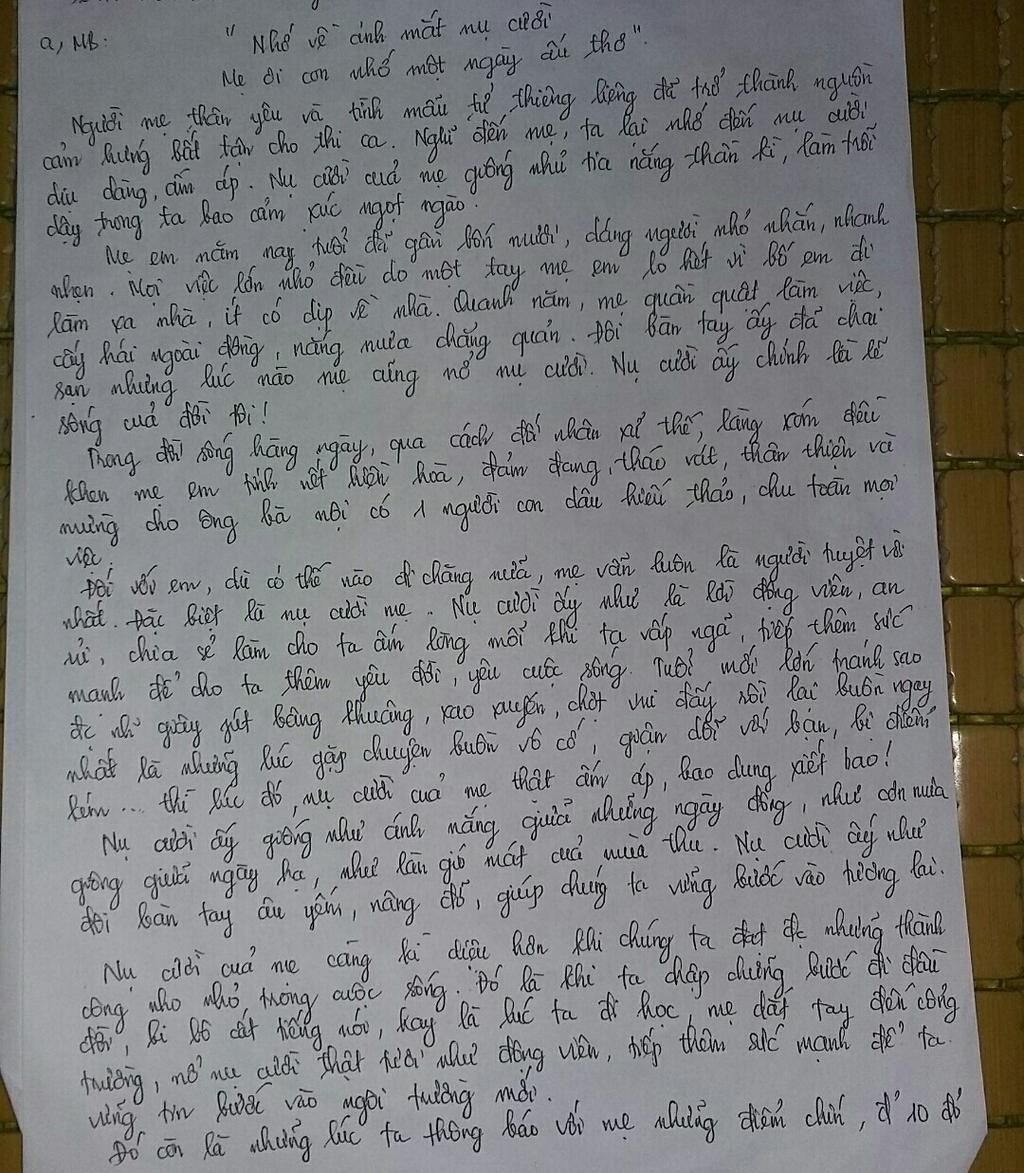 a, MB: " Nhớ về ánh mắt nụ cười
Mẹ ơi con nhớ một ngày ấu thơ".
Người mẹ thân yêu và tình mẫu tử thiêng liêng đã trở thành nguồn
cảm hứng bất tận cho thi ca. Nghĩ đến mẹ, ta lại nhớ đến nụ cười
dịu dàng, ấm áp. Nụ cười của mẹ giống như tia nắng thần kì, làm trỗi
dậy trong ta bao cảm xúc ngọt ngào.
Mẹ em năm nay tuổi đã gần bốn mươi, dáng người nhỏ nhắn, nhanh
nhẹn. Mọi việc lớn nhỏ đều do một tay mẹ em lo hết vì bố em đi
làm xa nhà, ít có dịp về nhà. Quanh năm, mẹ quần quật làm việc,
cấy hái ngoài đồng, nắng mưa chẳng quản. Đôi bàn tay ấy đã chai
sạn nhưng lúc nào mẹ cũng nở nụ cười. Nụ cười ấy chính là lẽ
sống của đời tôi!
Trong đời sống hằng ngày, qua cách đối nhân xử thế, làng xóm đều
khen mẹ em tính nết hiền hoà, đảm đang, tháo vát, thân thiện và
mừng cho ông bà nội có 1 người con dâu hiếu thảo, chu toàn mọi
việc.
Đối với em, dù có thế nào đi chăng nữa, mẹ vẫn luôn là người tuyệt vời
nhất. Đặc biệt là nụ cười mẹ. Nụ cười ấy như là lời động viên, an
ủi, chia sẻ làm cho ta ấm lòng mỗi khi ta vấp ngã, tiếp thêm sức
mạnh để cho ta thêm yêu đời, yêu cuộc sống. Tuổi mới lớn tránh sao
đc những giây phút bâng khuâng, xao xuyến, chợt vui đấy rồi lại buồn ngay
nhất là những lúc gặp chuyện buồn vô cớ, giận dỗi với bạn, bị điểm
kém... thì lúc đó, nụ cười của mẹ thật ấm áp, bao dung xiết bao!
Nụ cười ấy giống như ánh nắng giữa những ngày đông, như cơn mưa
giông giữa ngày hạ, như làn gió mát của mùa thu. Nụ cười ấy như
đôi bàn tay âu yếm, nâng đỡ, giúp chúng ta vững bước vào tương lai.
Nụ cười của mẹ càng kì diệu hơn khi chúng ta đạt đc những thành
công nho nhỏ trong cuộc sống. Đó là khi ta chập chững bước đi đầu
đời, bi bô cất tiếng nói, hay là lúc ta đi học, mẹ dắt tay đến cổng
trường, nở nụ cười thật tươi như động viên, tiếp thêm sức mạnh để ta
vững tin bước vào ngôi trường mới.
Đó còn là những lúc ta thông báo với mẹ những điểm chín, đ' 10 đỏ